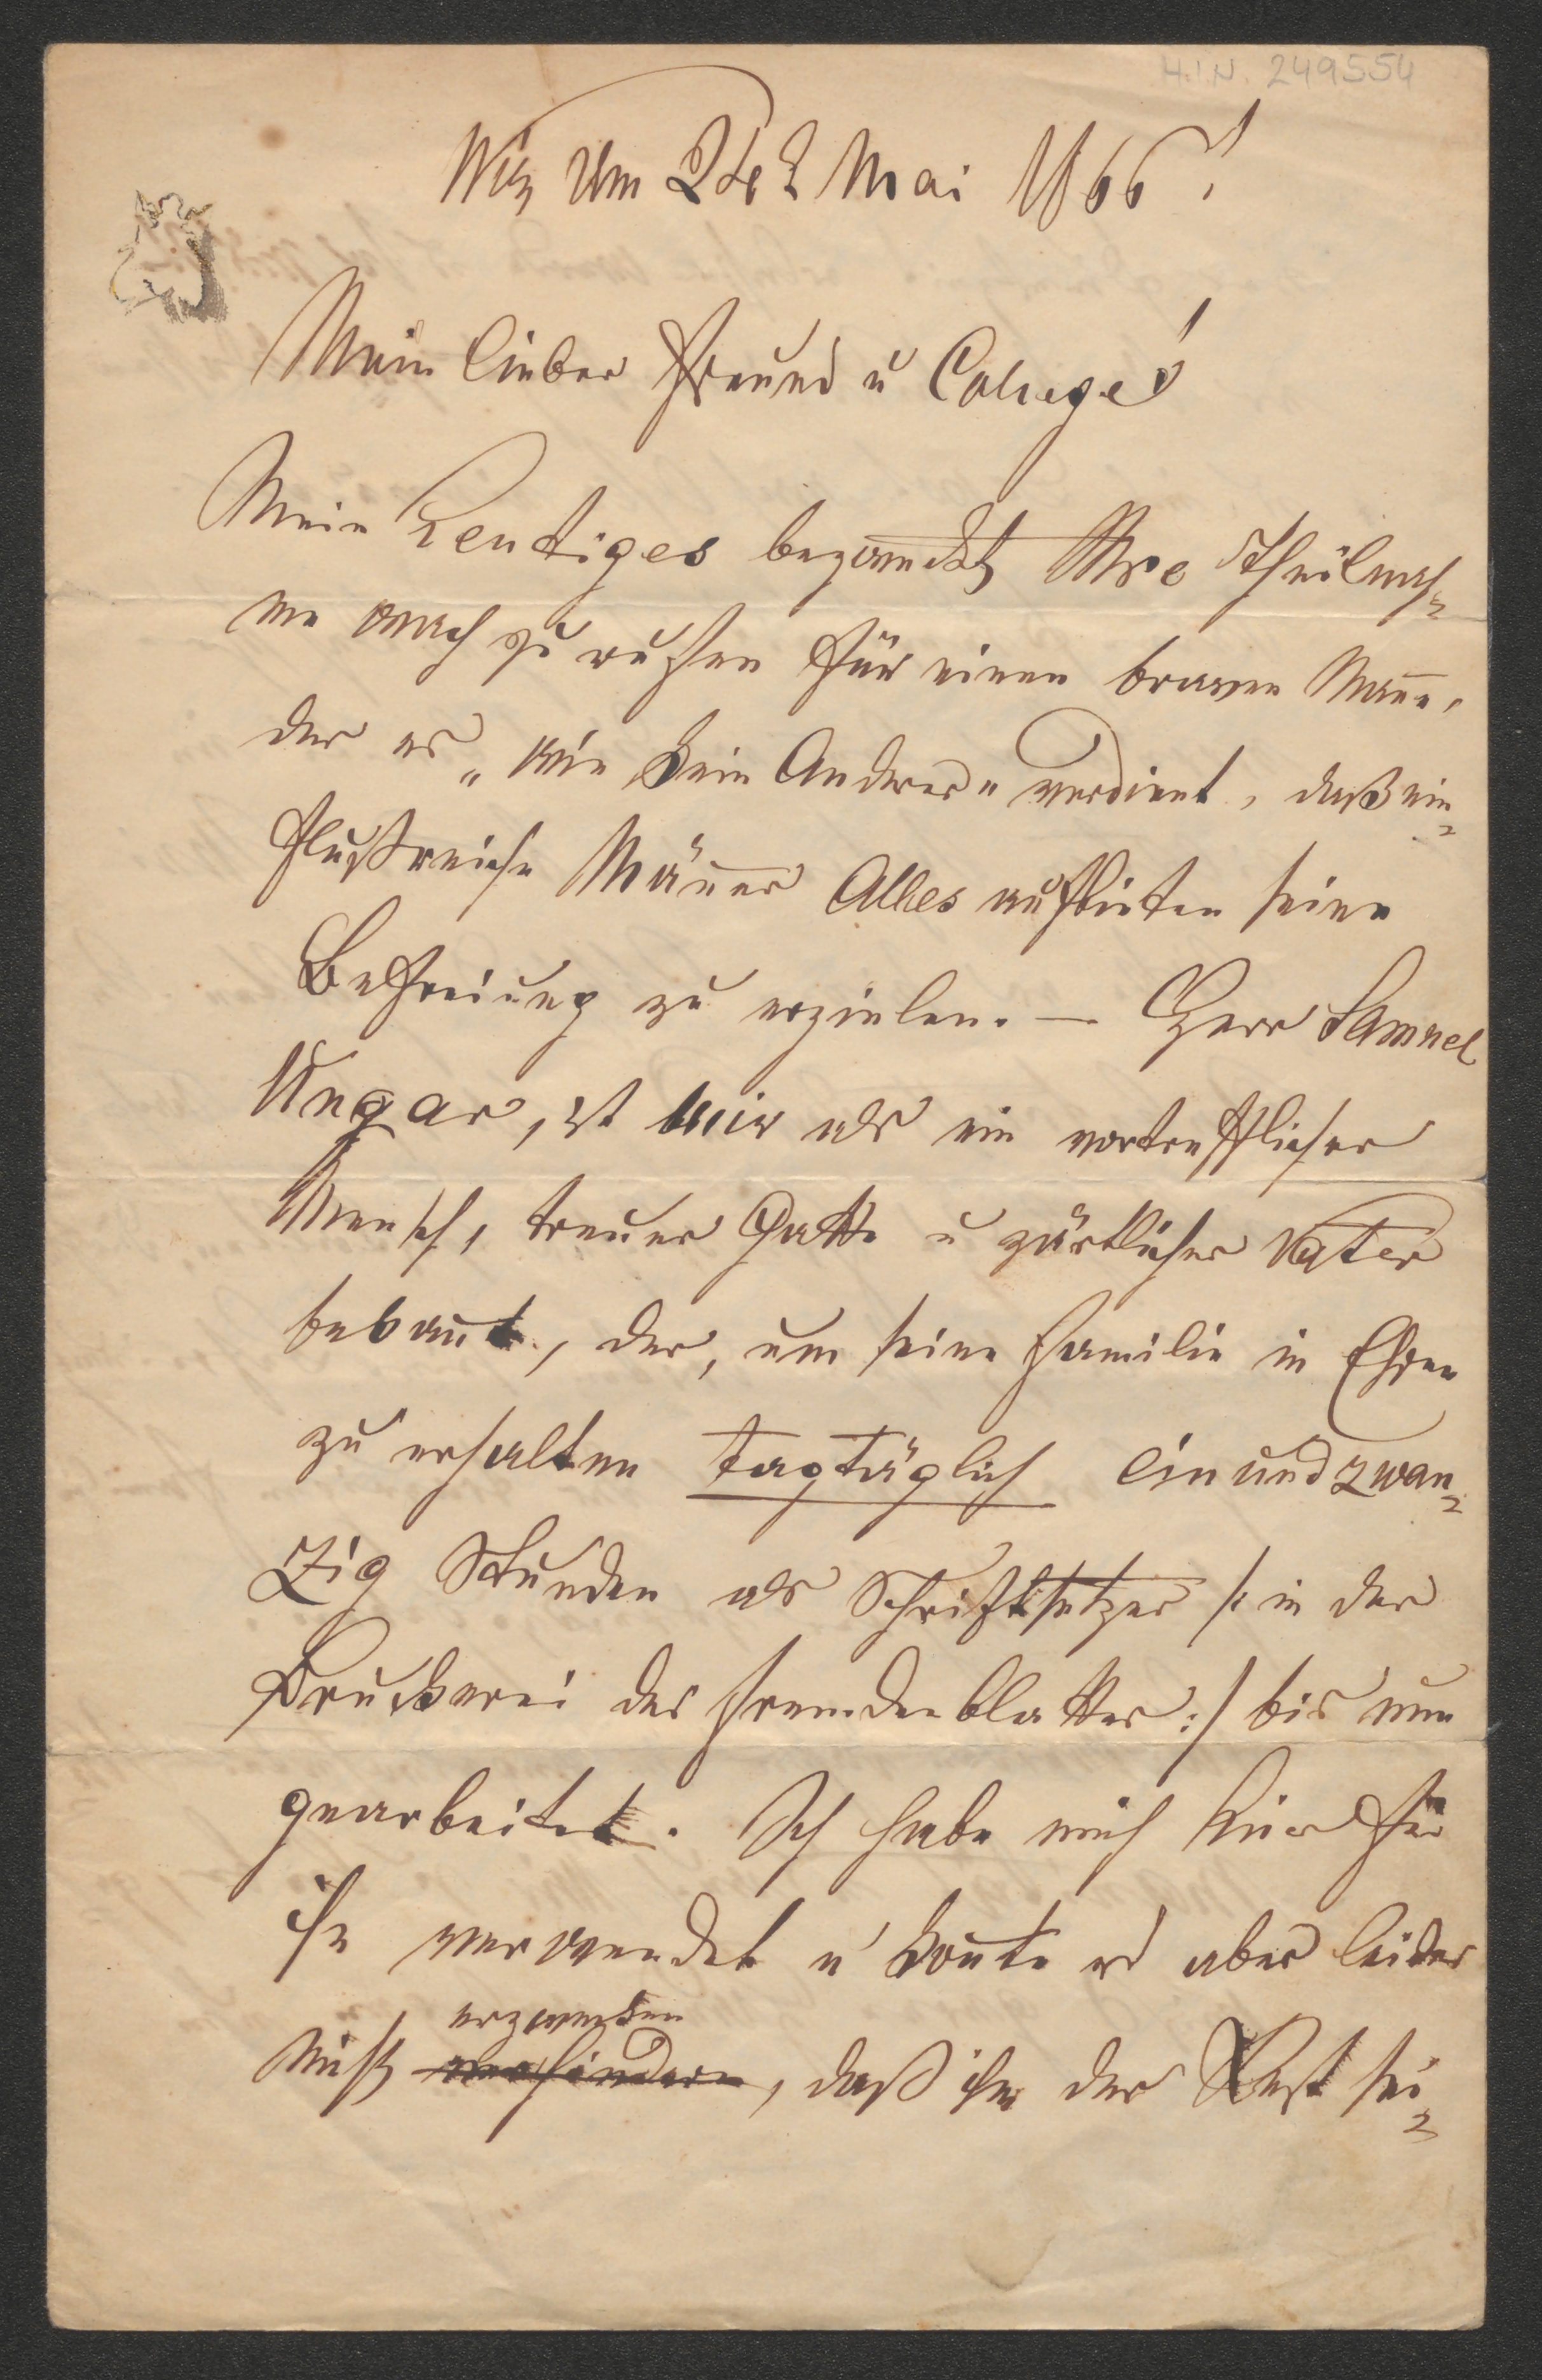 H.I.N. 249554
Wien Am 24t Mai 1866!
Mein lieber Freund u College!
Mein Heutiges bezweckt Ihre Theilnah=
me wach zu rufen für einen braven Mann,
der es „wie kein Anderer" verdient, daß ein=
flußreiche Männer Alles aufbieten seine
Befreiung zu erzielen. — Herr Samuel
Ungar, ist mir als ein vortrefflicher
Mensch, treuer Gatte u zärtlicher Vater
bekannt, der, um seine Familie in Ehren
zu erhalten tagtäglich einundzwan=
zig Stunden als Schriftsetzer /: in der
Druckerei des Fremdenblattes :/ bis nun
gearbeitet. Ich habe mich hier für
ihn verwendet u konnte es aber leider
erzwecken
nicht verhindern, daß ihm der Rest sei=